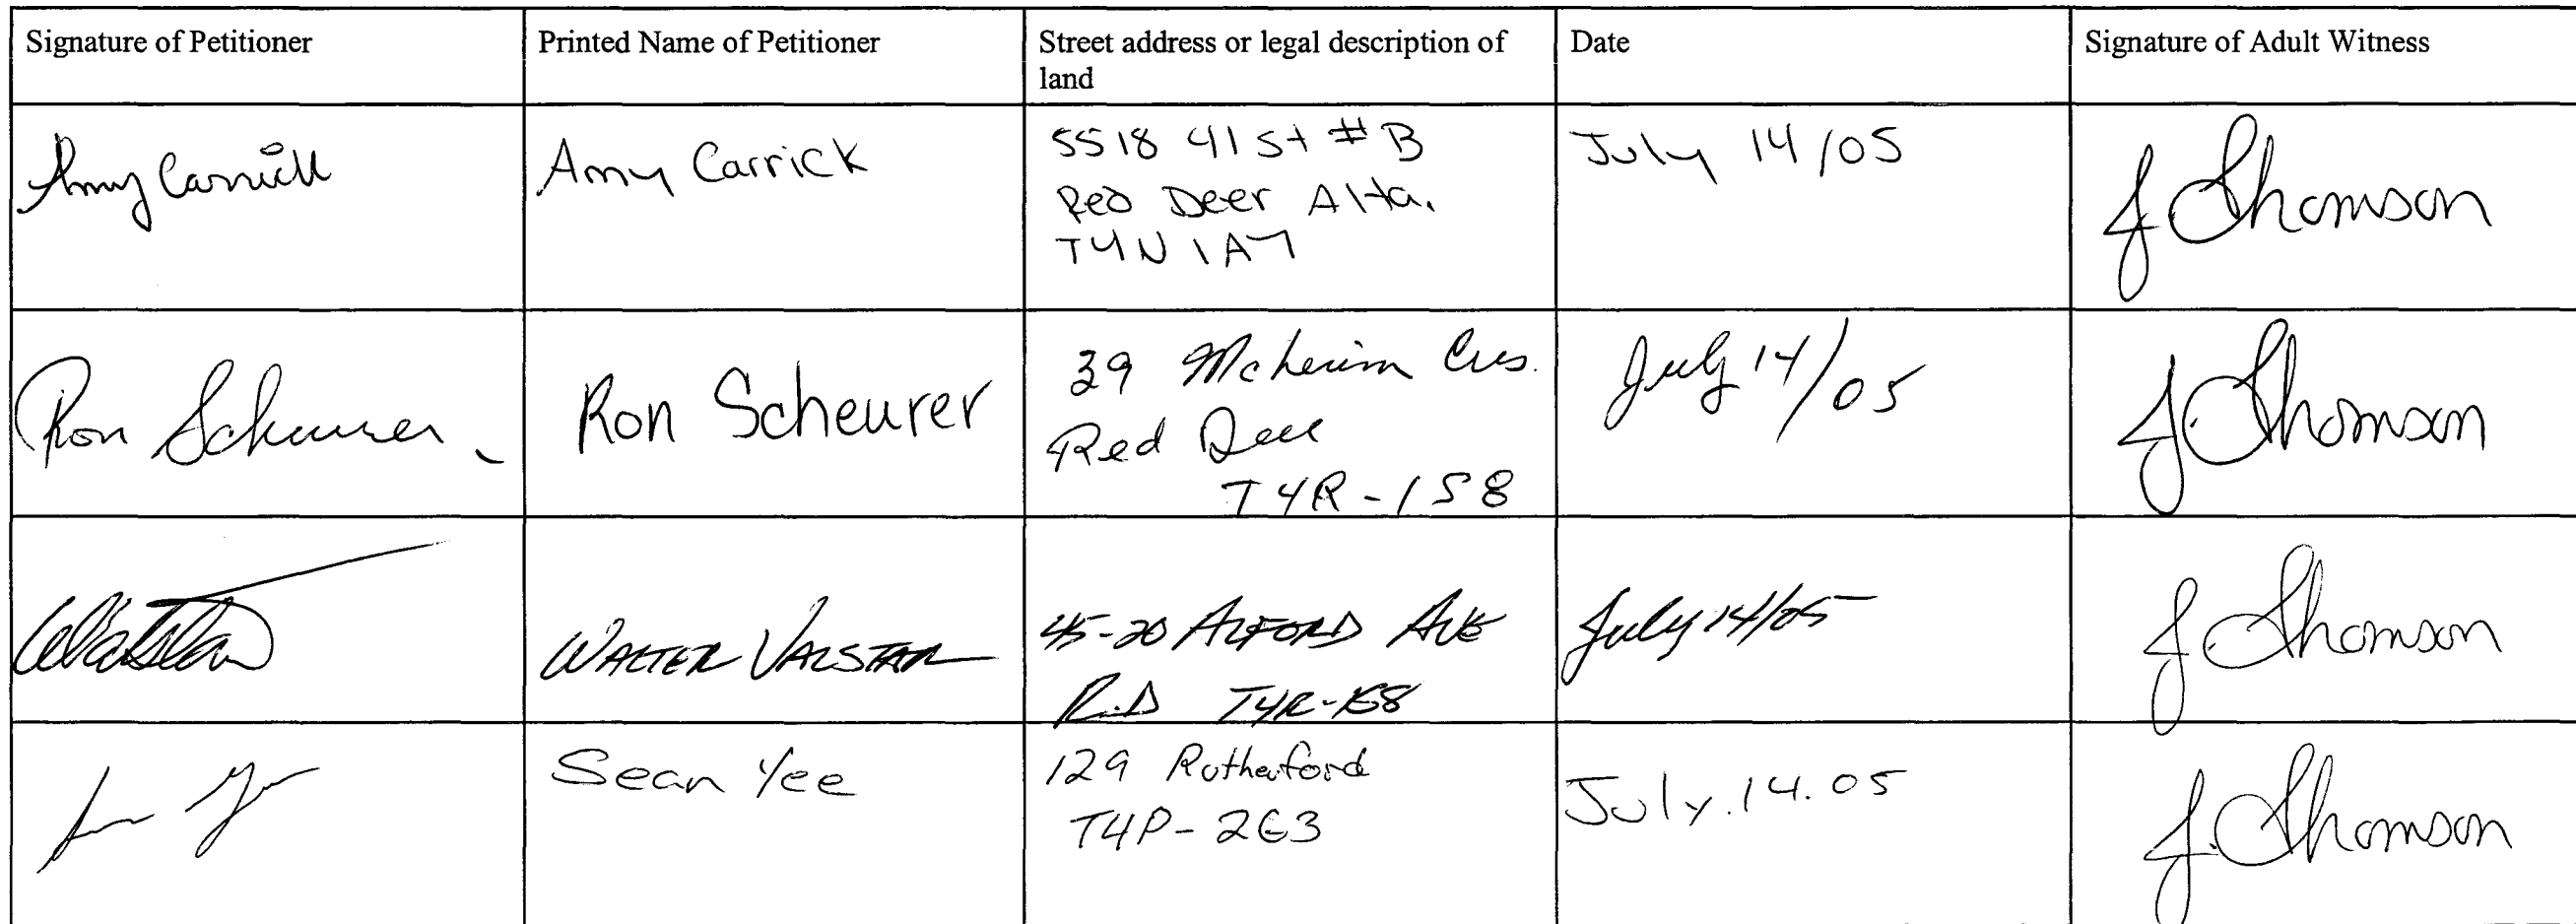 Signature of Petitioner
Printed Name of Petitioner
Street address or legal description of
land
Date
Signature of Adult Witness
Amy Carrick
Amy Carrick
5518 41 St #B
Red Deer Alta.
T4N 1A7
July 14/05
J Thomson
Ron Scheurer
Ron Scheurer
39 Cres.
Red Deer
T4R-1S8
July 14/05
J Thomson
WALTER VALSTAR
45-20 ALFORD AVE
R.D T4R-
July 14/05
J Thomson
Sean Yee
129 Rutherford
T4P-2E3
July.14.05
J. Thomson